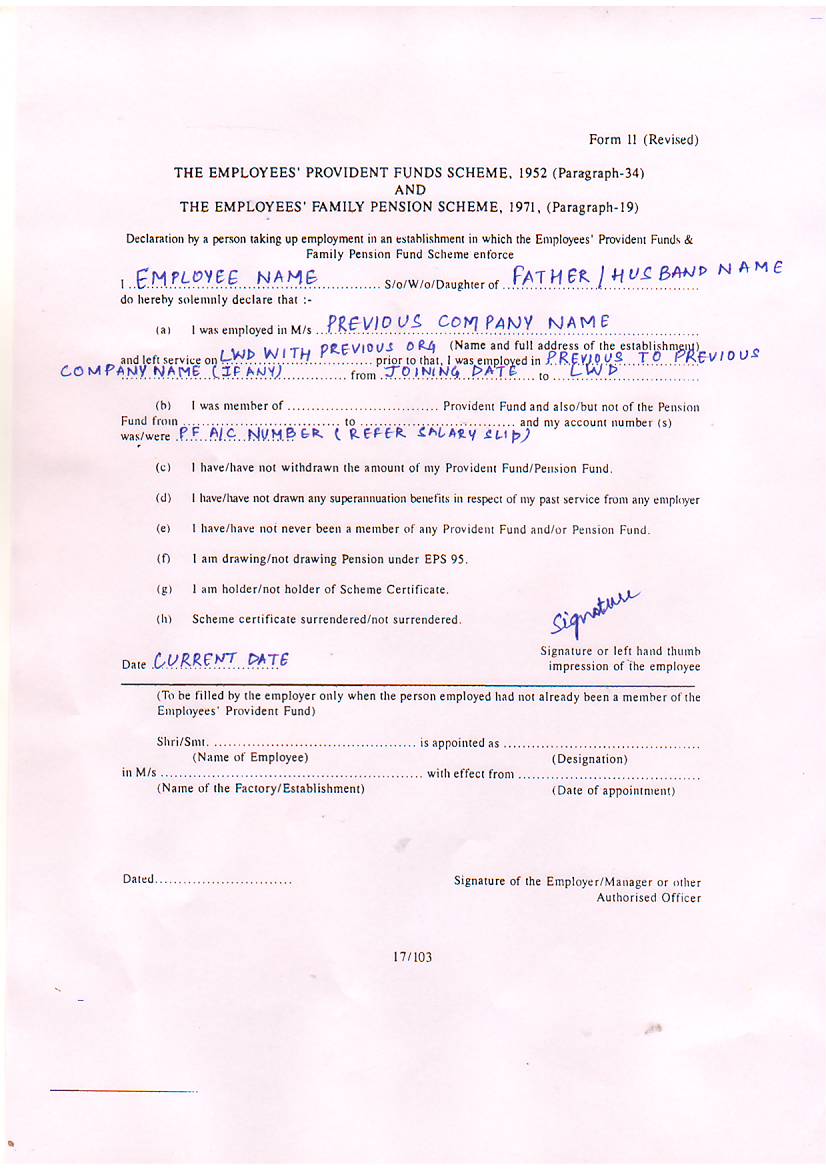 Form 11 (Revised)
THE EMPLOYEES' PROVIDENT FUNDS SCHEME, 1952 (Paragraph-34)
AND
THE EMPLOYEES' FAMILY PENSION SCHEME, 1971, (Paragraph-19)
Declaration by a person taking up employment in an establishment in which the Employees' Provident Funds &
Family Pension Fund Scheme enforce
I EMPLOYEE NAME S/o/W/o/Daughter of FATHER / HUSBAND NAME
do hereby solemnly declare that :-
(a) I was employed in M/s PREVIOUS COMPANY NAME
(Name and full address of the establishment)
and left service on LWD WITH PREVIOUS ORG prior to that, I was employed in PREVIOUS TO PREVIOUS
COMPANY NAME (IF ANY) from JOINING DATE to LWD
(b) I was member of .............................. Provident Fund and also/but not of the Pension
Fund from .............................. to .............................. and my account number (s)
was/were PF A/C NUMBER ( REFER SALARY SLIP)
(c) I have/have not withdrawn the amount of my Provident Fund/Pension Fund.
(d) I have/have not drawn any superannuation benefits in respect of my past service from any employer
(e) I have/have not never been a member of any Provident Fund and/or Pension Fund.
(f) I am drawing/not drawing Pension under EPS 95.
(g) I am holder/not holder of Scheme Certificate.
(h) Scheme certificate surrendered/not surrendered.
Signature
Signature or left hand thumb
Date CURRENT DATE impression of the employee
(To be filled by the employer only when the person employed had not already been a member of the
Employees' Provident Fund)
Shri/Smt. ........................................ is appointed as .......................................
(Name of Employee) (Designation)
in M/s .................................................... with effect from ....................................
(Name of the Factory/Establishment) (Date of appointment)
Dated........................... Signature of the Employer/Manager or other
Authorised Officer
17/103